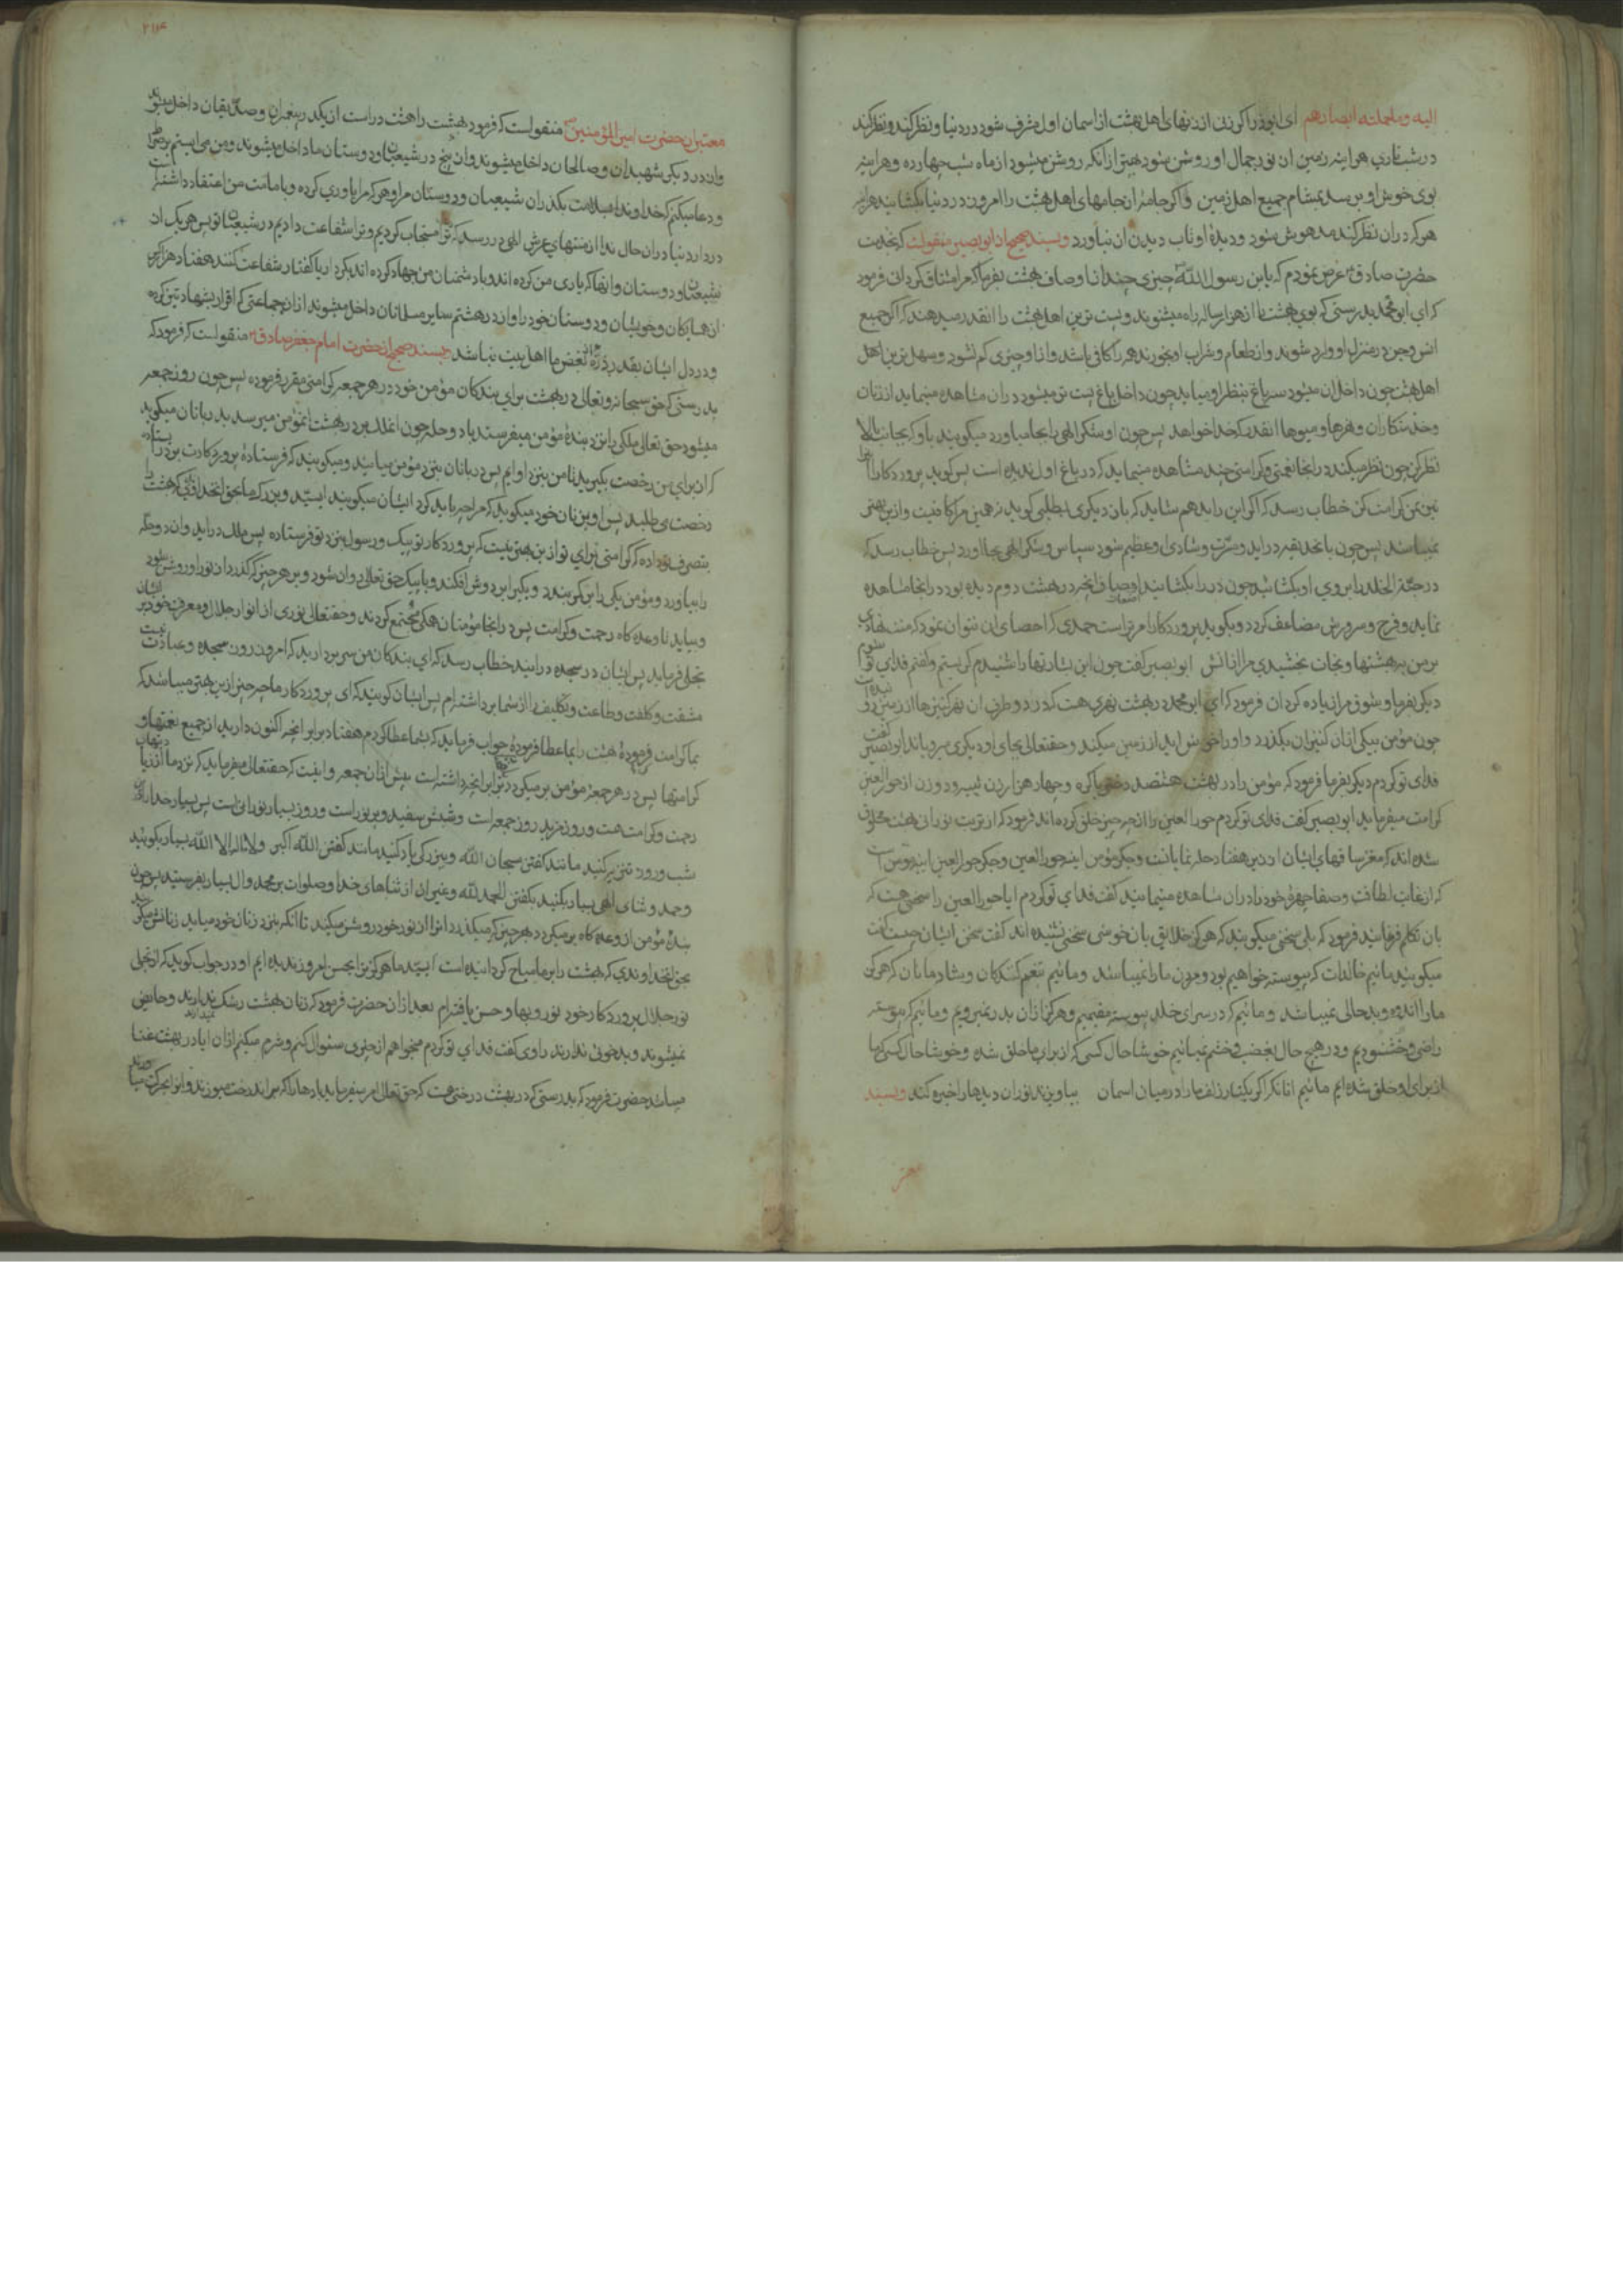 الیه وماحملته ابصارهم ای ابوذر اکر زنی از زنهای اهل بهشت از اسمان اول مشرف شود در دنیا و نظر کند
در شب تاری هراینه زمین از نور جمال او روشن شود بهتر از آنکه روشن میشود از ماه شب چهارده وهراینه
بوی خوش او برسد بمشام جمیع اهل زمین واکر جامهٔ از جامهای اهل بهشت را امروز در دنیا بکشایند هراینه
هرکه دران نظر کند مدهوش شود ودیدهٔ او تاب دیدن ان نیاورد وبسند صحیح از ابوبصیر منقولست که بخدمت
حضرت صادق عرض نمودم که یابن رسول الله چیزی چند از اوصاف بهشت بفرما که مرا مشتاق کردانی فرمود
که ای ابومحمد بدرستی که بوی بهشت را از هزارساله راه میشنوند وپست ترین اهل بهشت را انقدر میدهند که اکر جمیع
انس وجن در منزل او وارد شوند واز طعام وشراب او بخورند همه را کافی باشد وازا وچیزی کم نشود وسهل ترین اهل
اهل بهشت چون داخل ان میشود سه باغ بنظر او میاید چون داخل باغ پست تر میشود دران مشاهده مینماید از زنان
وخدمتکاران ونهرها ومیوها انقدر که خدا خواهد پس چون او شکر الهی را بجا میاورد میکویند باو که بجانب بالا
نظر کن چون نظر میکند در انجا نعمتی وکرامتی چند مشاهده مینماید که در باغ اول ندیده است پس کوید پروردکارا این را
بمن کرامت کن خطاب رسد که اکر این را بدهم شاید که بازدیکری بطلبی کوید نه همین مرا کافیست وازین بهتر
نمیباشد پس چون باغ در اید ومسرت وشادی او عظیم شود سپاس وشکر الهی بجا اورد پس خطاب رسد که
در جنة الخلد را بروی او بکشائید چون در را بکشایند اضعاف انچه در بهشت دوم دیده بود در انجا مشاهده
نماید وفرح وسرورش مضاعف کردد وبکوید پروردکارا مر تراست حمدی که احصای ان نتوان نمود که منت نهادی
بر من ببهشتها ونجات بخشیدی مرا از اتش ابوبصیر کفت چون این بشارتها را شنیدم کریستم وکفتم فدای تو شوم
دیکر بفرما وشوق مرا زیاده کردان فرمود که ای ابومحمد در بهشت نهری هست که در دو طرف ان نهر کنیزها از زمین روئیده است
چون مؤمن بیکی از ان کنیزان بکذرد واو را خوش اید از زمین میکند وحقتعالی بجای او دیکری میرویاند ابوبصیر کفت
فدای تو کردم دیکر بفرما فرمود که مؤمن را در بهشت هشتصد دختر باکره وچهار هزار زن ثیبه ودو زن از حورالعین
کرامت میفرماید ابوبصیر کفت فدای تو کردم حورالعین را از چه چیز خلق کرده اند فرمود که از تربت نورانی بهشت مخلوق
شده اند که مغز ساقهای ایشان از زیر هفتاد حله نمایانست وجکر مؤمن اینه حورالعین وجکر حورالعین اینه مؤمن است
که از غایت لطافت وصفا چهرهٔ خود را دران مشاهده مینمایند کفت فدای تو کردم ایا حورالعین را سخنی هست که
بان تکلم فرمایند فرمود که بلی سخنی میکویند که هرکز خلایق بان خوشی سخنی نشنیده اند کفت سخن ایشان چیست کفت
میکویند مائیم خالدات که پیوسته خواهیم بود ومردن ما را نمیباشد ومائیم تنعم کنندکان وشادمانان که هرکز
ما را اندوه وبدحالی نمیباشد ومائیم که در سرای خلد پیوسته مقیمیم وهرکز ازان بدر نمیرویم ومائیم که پیوسته
راضی وخشنودیم ودر هیچ حال بغضب وخشم نمیائیم خوشا حال کسی که از برای ما خلق شده وخوشا حال کسی که ما
از برای او خلق شده ایم مائیم انانکه اکر یکتار زلف ما را در میان اسمان بیاویزند نور ان دیدها را خیره کند وبسند
۲۱۴
معتبر از حضرت امیرالمؤمنین منقولست که فرمود بهشت را هشت در است از یکدر پیغمبران وصدیقان داخل میشوند
واز در دیکر شهیدان وصالحان داخل میشوند واز پنج در شیعیان ودوستان ما داخل میشوند ومن می ایستم بر صراط
ودعا میکنم که خداوندا بسلامت بکذران شیعیان ودوستان مرا وهرکه مرا یاوری کرده وبامامت من اعتقاد داشته است
در دار دنیا دران حال ندا از منتهای عرش الهی در رسد که ترا مستجاب کردیم وترا شفاعت دادیم در شیعیان تو پس هریک از
شیعیان ودوستان وانها که یاری من کرده اند وبا دشمنان من جهاد کرده اند بکردار یا کفتار شفاعت کنند هفتاد هزار کس
از همسایکان وخویشان ودوستان خود را واز در هشتم سایر مسلمانان داخل میشوند ازان جماعتی که اقرار بشهادتین کرده
ودر دل ایشان بقدر ذرهٔ از بغض ما اهل بیت نباشد بسند صحیح از حضرت امام جعفر صادق منقولست که فرمود که
بدرستی که حق سبحانه وتعالی در بهشت برای بندکان مؤمن خود در هر جمعه کرامتی مقرر فرموده پس چون روز جمعه
میشود حق تعالی ملکی را نزد بندهٔ مؤمن میفرستد با دو حله چون ان ملک بدر بهشت ان مؤمن میرسد بدربانان میکوید
که از برای من رخصت بکیرید تا من بنزد او ایم پس دربانان بنزد مؤمن میایند ومیکویند که فرستادهٔ پروردکارت بر در ایستاده
رخصت می طلبد پس او بزنان خود میکوید که مرا چه باید کرد ایشان میکویند ای سید وبزرک ما بحق انخداوندی که بهشت را
بتصرف تو داده که کرامتی برای تو ازین بهتر نیست که پروردکار تو پیک ورسول بنزد تو فرستاده پس ملک در اید وان دو حله
را بیاورد ومؤمن یکی را بر کمر بندد ویکی را بر دوش افکند وبا پیک حق تعالی روان شود وبر هر چیز که کذرد از نور او روشن شود
وبیاید تا وعده کاه رحمت وکرامت پس در انجا مؤمنان همکی مجتمع کردند وحقتعالی نوری از انوار جلال ومعرفت خود بر ایشان
تجلی فرماید پس ایشان در سجده درایند خطاب رسد که ای بندکان من سر بردارید که امروز روز سجده وعبادت نیست
مشقت وکلفت وطاعت وتکلیف را از شما برداشته ام پس ایشان کویند که ای پروردکار ما چه چیز ازین بهتر میباشد که
بما کرامت فرمودهٔ بهشت را بما عطا فرمودهٔ جواب فرماید که بشما عطا کردم هفتاد برابر انچه اکنون دارید از جمیع نعمتها و
کرامتها پس در هر جمعه مؤمن بر میکردد برابر انچه داشته است پیش ازان جمعه واینست که حقتعالی میفرماید که نزد ما از زیادتیهای
رحمت وکرامت هست وروز مزید روز جمعه است وشبش سفید وپر نور است وروز بسیار نورانی است پس بسیار خدا را دران
شب وروز تنزیه کنید مانند کفتن سبحان الله وببزرکی یاد کنید مانند کفتن الله اکبر ولا اله الا الله بسیار بکوئید
وحمد وثنای الهی بسیار بکنید بکفتن الحمد لله وغیر ان از ثناهای خدا وصلوات بر محمد وال بسیار بفرستید پس چون
بندهٔ مؤمن از وعده کاه بر میکردد بهر چیز که میکذرد انرا از نور خود روشن میکند تا انکه بنزد زنان خود میاید زنانش میکویند
بحق انخداوندی که بهشت را بر ما مباح کردانیده است ای سید ما هرکز ترا بحسن امروز ندیده ایم او در جواب کوید که از تجلی
نور جلال پروردکار خود نور وبها وحسن یافته ام بعد ازان حضرت فرمود که زنان بهشت رشک ندارند وحایض
نمیشوند وبدخوئی ندارند راوی کفت فدای تو کردم میخواهم از چیزی سئوال کنم وشرم میکنم ازان ایا در بهشت غنا
میباشد حضرت فرمود که بدرستی که در بهشت درختی هست که حق تعالی امر میفرماید بادها را که بر اندرخت میوزند وانرا بحرکت میاورند